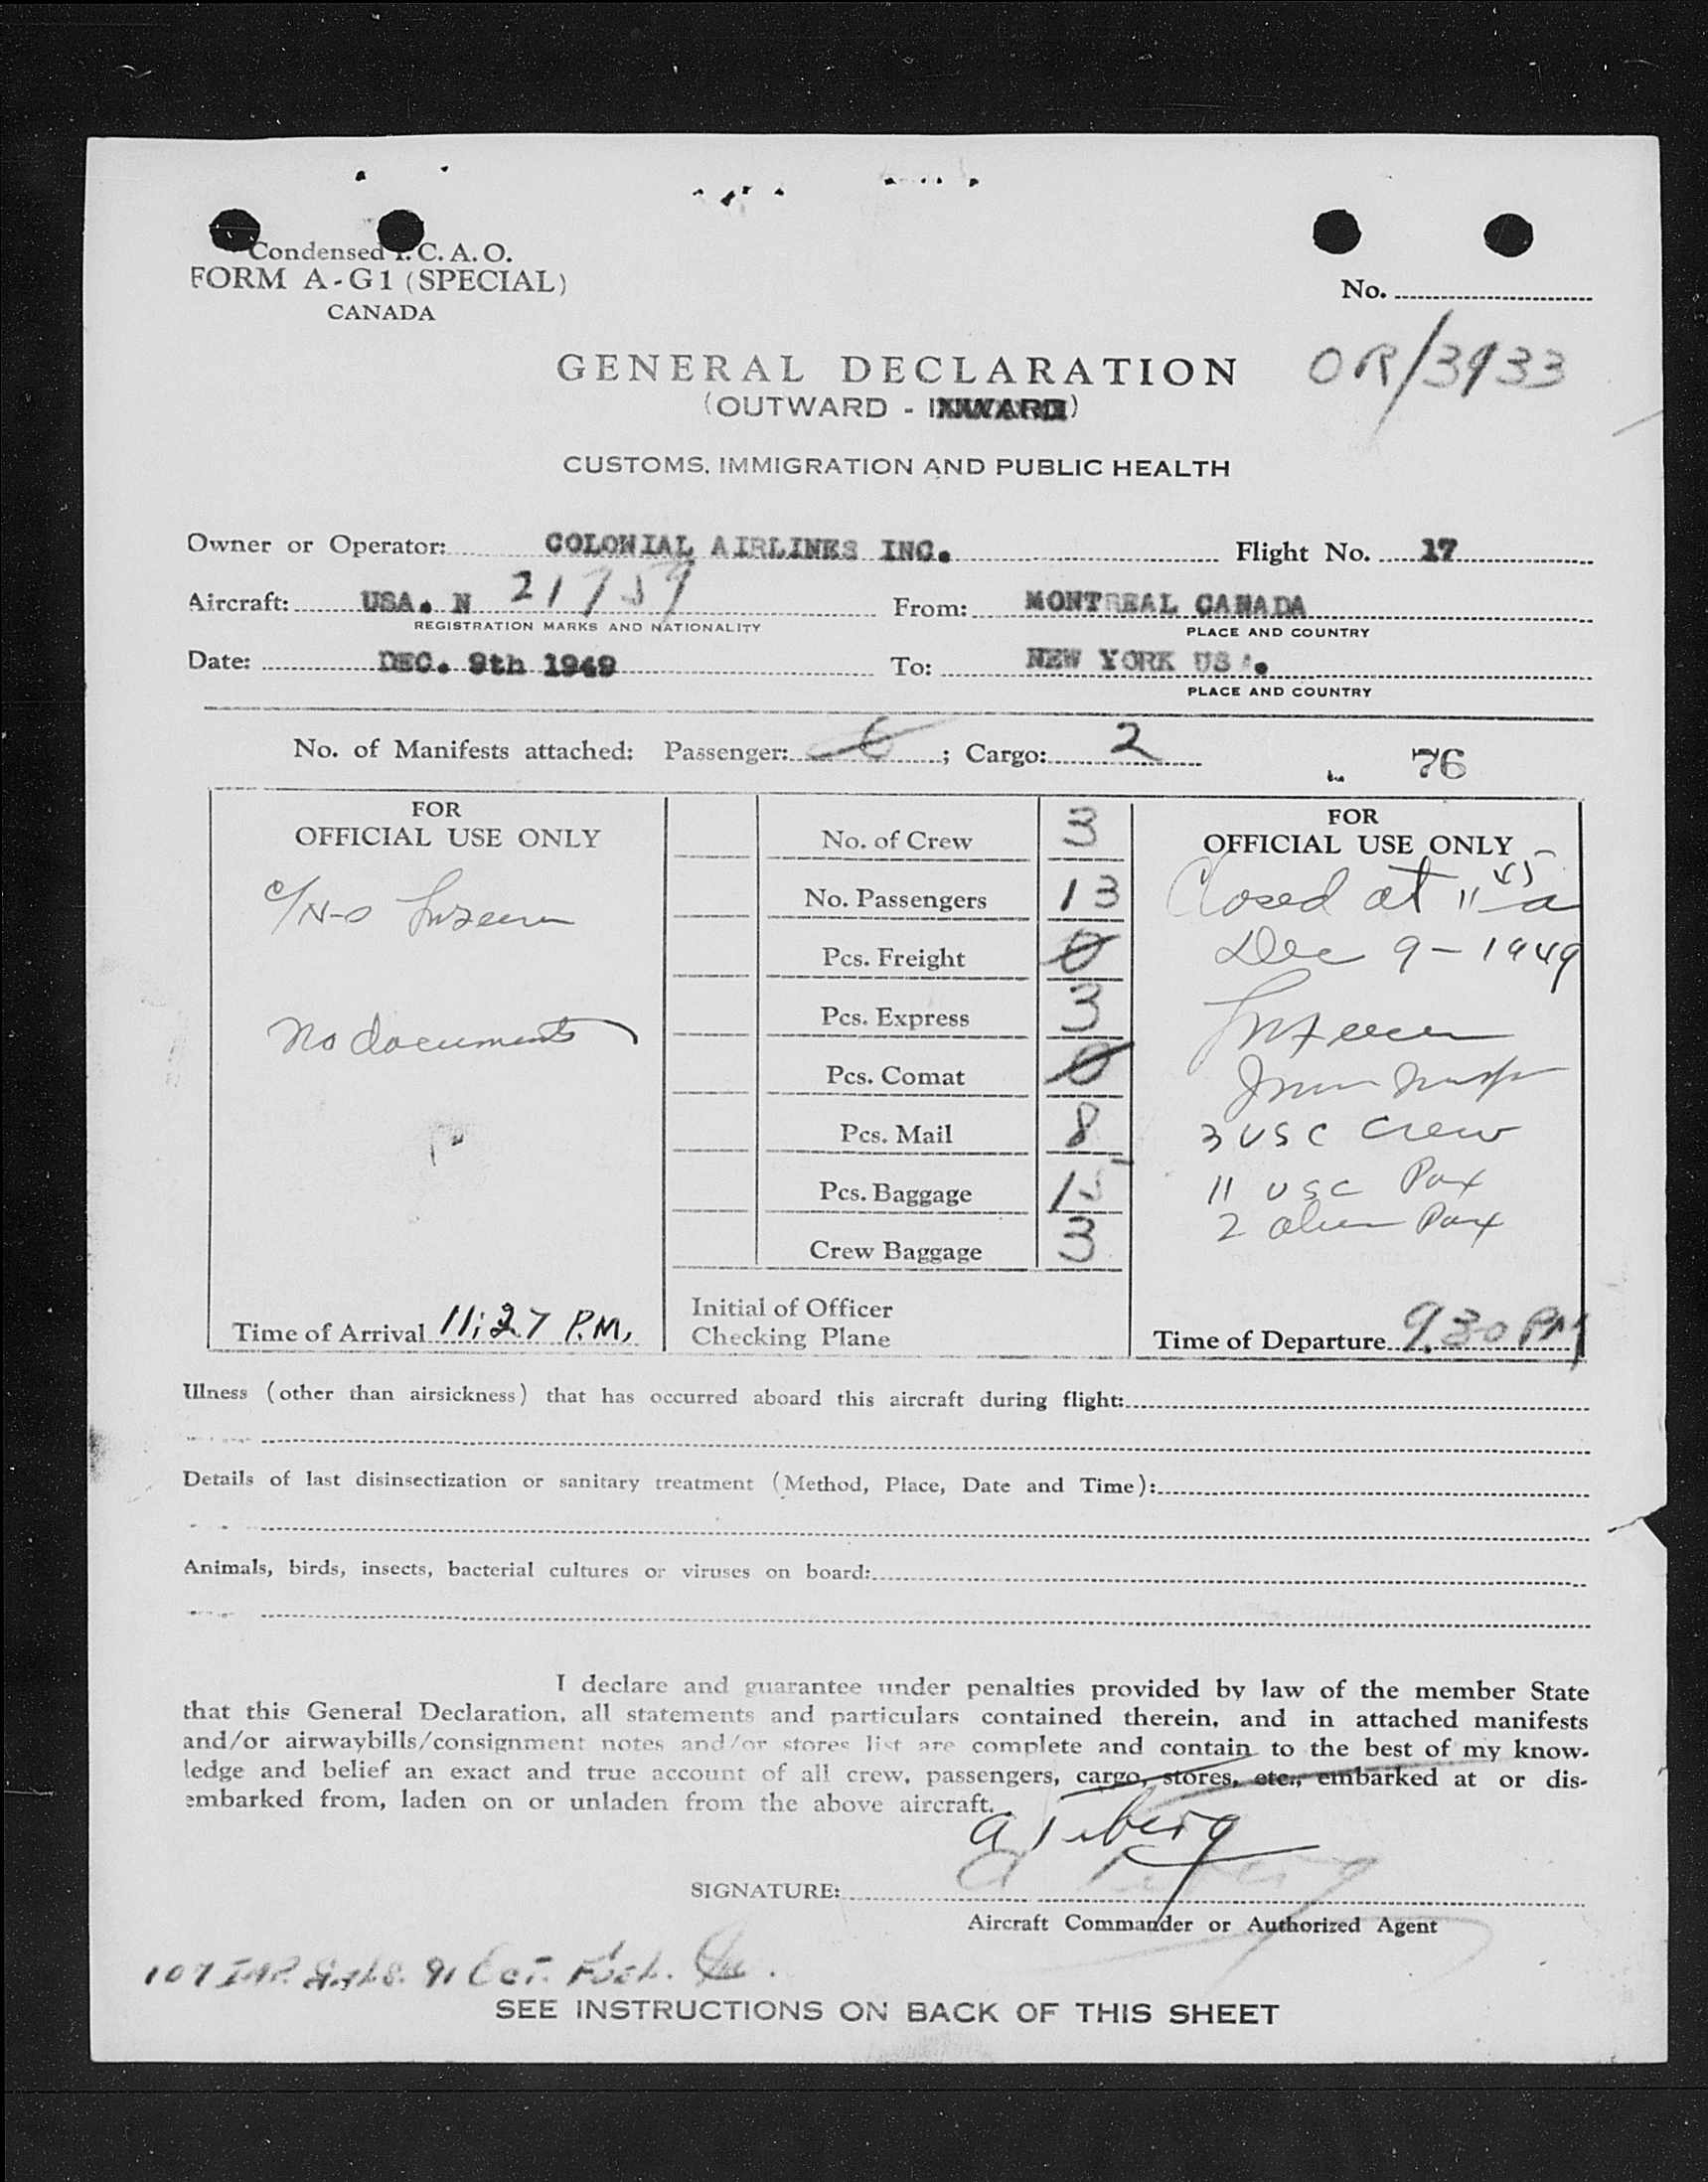 Condensed I. C. A. O.
FORM A-G1 (SPECIAL)
CANADA
No.
OR/3933
GENERAL DECLARATION
(OUTWARD - INWARD)
CUSTOMS, IMMIGRATION AND PUBLIC HEALTH
Owner or Operator: COLONIAL AIRLINES INC. Flight No. 17
Aircraft: USA. N 21759 From: MONTREAL CANADA
REGISTRATION MARKS AND NATIONALITY PLACE AND COUNTRY
Date: DEC. 9th 1949 To: NEW YORK USA.
PLACE AND COUNTRY
No. of Manifests attached: Passenger: ; Cargo: 2 76
FOR
OFFICIAL USE ONLY
No documents
Time of Arrival 11:27 P.M.
No. of Crew 3
No. Passengers 13
Pcs. Freight 0
Pcs. Express 3
Pcs. Comat 0
Pcs. Mail 8
Pcs. Baggage 15
Crew Baggage 3
Initial of Officer
Checking Plane
FOR
OFFICIAL USE ONLY
Closed at 11 45 a
Dec 9 - 1949
3 USC Crew
11 USC Pax
2 alien Pax
Time of Departure 9.30 PM
Illness (other than airsickness) that has occurred aboard this aircraft during flight:
Details of last disinsectization or sanitary treatment (Method, Place, Date and Time):
Animals, birds, insects, bacterial cultures or viruses on board:
I declare and guarantee under penalties provided by law of the member State
that this General Declaration, all statements and particulars contained therein, and in attached manifests
and/or airwaybills/consignment notes and/or stores list are complete and contain to the best of my know-
ledge and belief an exact and true account of all crew, passengers, cargo, stores, etc., embarked at or dis-
embarked from, laden on or unladen from the above aircraft.
SIGNATURE:
Aircraft Commander or Authorized Agent
107 IMP. GALS. 91 OCT. FUEL.
SEE INSTRUCTIONS ON BACK OF THIS SHEET